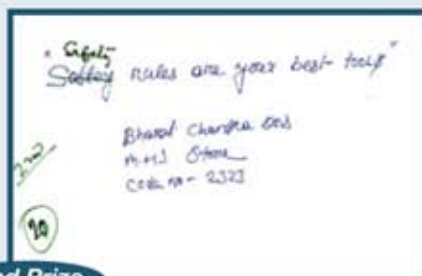 " Safety
Saftey rules are your best tools"
Bharat Chandra Das
M.H.S Store
Code no - 2323
2nd
20
nd Prize